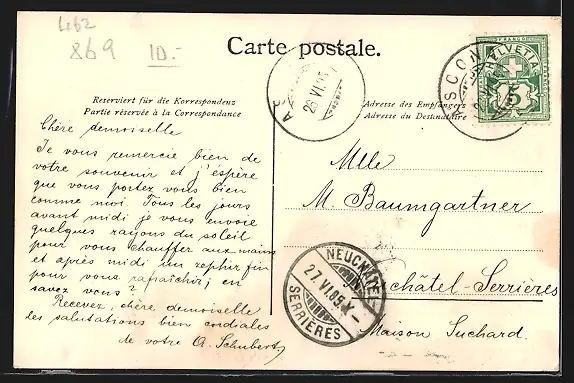 1eb2
869 10.-
Carte postale.
HELVETIA
FRANCO
5
SCON
A
26 VI.05
Reserviert für die Korrespondenz
Partie réservée à la Correspondance
Adresse des Empfängers
Adresse du Destinataire
Chère demoiselle
Je vous remercie bien de
votre souvenir et j'éspère
que vous portez vous bien
comme moi. Tous les jours
avant midi je vous envoie
quelques rayons du soleil
pour vous chauffer aux mains
et après midi un zephir fin
pour vous rafraîchir; en
savez vous?
Recevez, chère demoiselle
les salutations bien cordiales
de votre A. Schubert
Mlle
M. Baumgartner
châtel-Serrières
Maison Suchard.
NEUCHÂTEL
27.VI.05.X-
SERRIÈRES